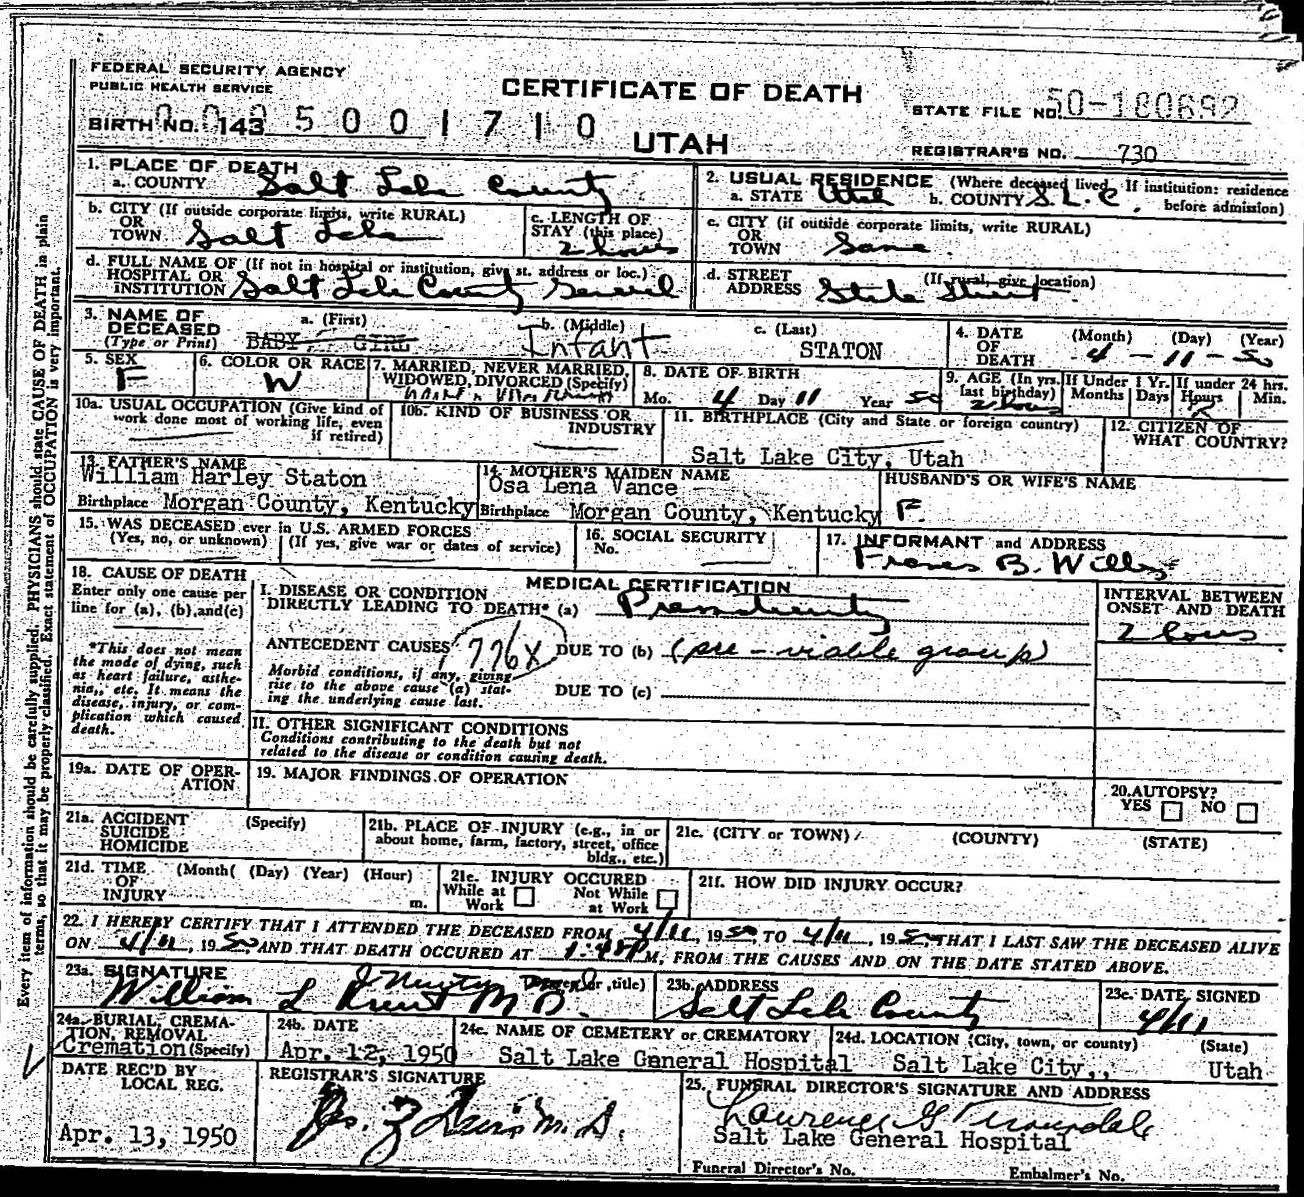 FEDERAL SECURITY AGENCY
PUBLIC HEALTH SERVICE
CERTIFICATE OF DEATH
STATE FILE NO. 50-180692
BIRTH NO. 143 5001710
UTAH
REGISTRAR'S NO. 730
Every item of information should be carefully supplied. PHYSICIANS should state CAUSE OF DEATH in plain
terms, so that it may be properly classified. Exact statement of OCCUPATION is very important.
1. PLACE OF DEATH
a. COUNTY Salt Lake County
2. USUAL RESIDENCE (Where deceased lived. If institution: residence
a. STATE Utah b. COUNTY S.L.C. before admission)
b. CITY (If outside corporate limits, write RURAL)
OR
TOWN Salt Lake
c. LENGTH OF
STAY (this place)
2 hours
c. CITY (if outside corporate limits, write RURAL)
OR
TOWN Same
d. FULL NAME OF (If not in hospital or institution, give st. address or loc.)
HOSPITAL OR
INSTITUTION Salt Lake County General
d. STREET (If rural, give location)
ADDRESS State Street
3. NAME OF
DECEASED
(Type or Print)
a. (First) b. (Middle) c. (Last)
BABY GIRL Infant STATON
4. DATE (Month) (Day) (Year)
OF
DEATH 4-11-50
5. SEX
F
6. COLOR OR RACE
W
7. MARRIED, NEVER MARRIED,
WIDOWED, DIVORCED (Specify)
8. DATE OF BIRTH
Mo. 4 Day 11 Year 50
9. AGE (In yrs.
last birthday)
2 hours
If Under 1 Yr.
Months Days
If under 24 hrs.
Hours Min.
2
10a. USUAL OCCUPATION (Give kind of
work done most of working life, even
if retired)
10b. KIND OF BUSINESS OR
INDUSTRY
11. BIRTHPLACE (City and State or foreign country)
Salt Lake City, Utah
12. CITIZEN OF
WHAT COUNTRY?
13. FATHER'S NAME
William Harley Staton
Birthplace Morgan County, Kentucky
14. MOTHER'S MAIDEN NAME
Osa Lena Vance
Birthplace Morgan County, Kentucky
HUSBAND'S OR WIFE'S NAME
F.
15. WAS DECEASED ever in U.S. ARMED FORCES
(Yes, no, or unknown) (If yes, give war or dates of service)
16. SOCIAL SECURITY
No.
17. INFORMANT and ADDRESS
B. Wills
18. CAUSE OF DEATH
Enter only one cause per
line for (a), (b), and (c)
*This does not mean
the mode of dying, such
as heart failure, asthe-
nia, etc. It means the
disease, injury, or com-
plication which caused
death.
MEDICAL CERTIFICATION
I. DISEASE OR CONDITION
DIRECTLY LEADING TO DEATH* (a) Prematurity
ANTECEDENT CAUSES 776X DUE TO (b) (pre-viable group)
Morbid conditions, if any, giving
rise to the above cause (a) stat-
ing the underlying cause last.
DUE TO (c)
INTERVAL BETWEEN
ONSET AND DEATH
2 hours
II. OTHER SIGNIFICANT CONDITIONS
Conditions contributing to the death but not
related to the disease or condition causing death.
19a. DATE OF OPER-
ATION
19. MAJOR FINDINGS OF OPERATION
20. AUTOPSY?
YES NO
21a. ACCIDENT (Specify)
SUICIDE
HOMICIDE
21b. PLACE OF INJURY (e.g., in or
about home, farm, factory, street, office
bldg., etc.)
21c. (CITY or TOWN) (COUNTY) (STATE)
21d. TIME (Month( (Day) (Year) (Hour)
OF
INJURY m.
21e. INJURY OCCURED
While at Not While
Work at Work
21f. HOW DID INJURY OCCUR?
22. I HEREBY CERTIFY THAT I ATTENDED THE DECEASED FROM 4/11, 1950 TO 4/11, 1950 THAT I LAST SAW THE DECEASED ALIVE
ON 4/11, 1950 AND THAT DEATH OCCURED AT 1:45P M, FROM THE CAUSES AND ON THE DATE STATED ABOVE.
23a. SIGNATURE (Degree or title)
William L M.D.
23b. ADDRESS
Salt Lake County
23c. DATE SIGNED
4/11
24a. BURIAL, CREMA-
TION, REMOVAL
Cremation (Specify)
24b. DATE
Apr. 12, 1950
24c. NAME OF CEMETERY OR CREMATORY
Salt Lake General Hospital
24d. LOCATION (City, town, or county) (State)
Salt Lake City,, Utah
DATE REC'D BY
LOCAL REG.
Apr. 13, 1950
REGISTRAR'S SIGNATURE
25. FUNERAL DIRECTOR'S SIGNATURE AND ADDRESS
Lawrence G
Salt Lake General Hospital
Funeral Director's No. Embalmer's No.